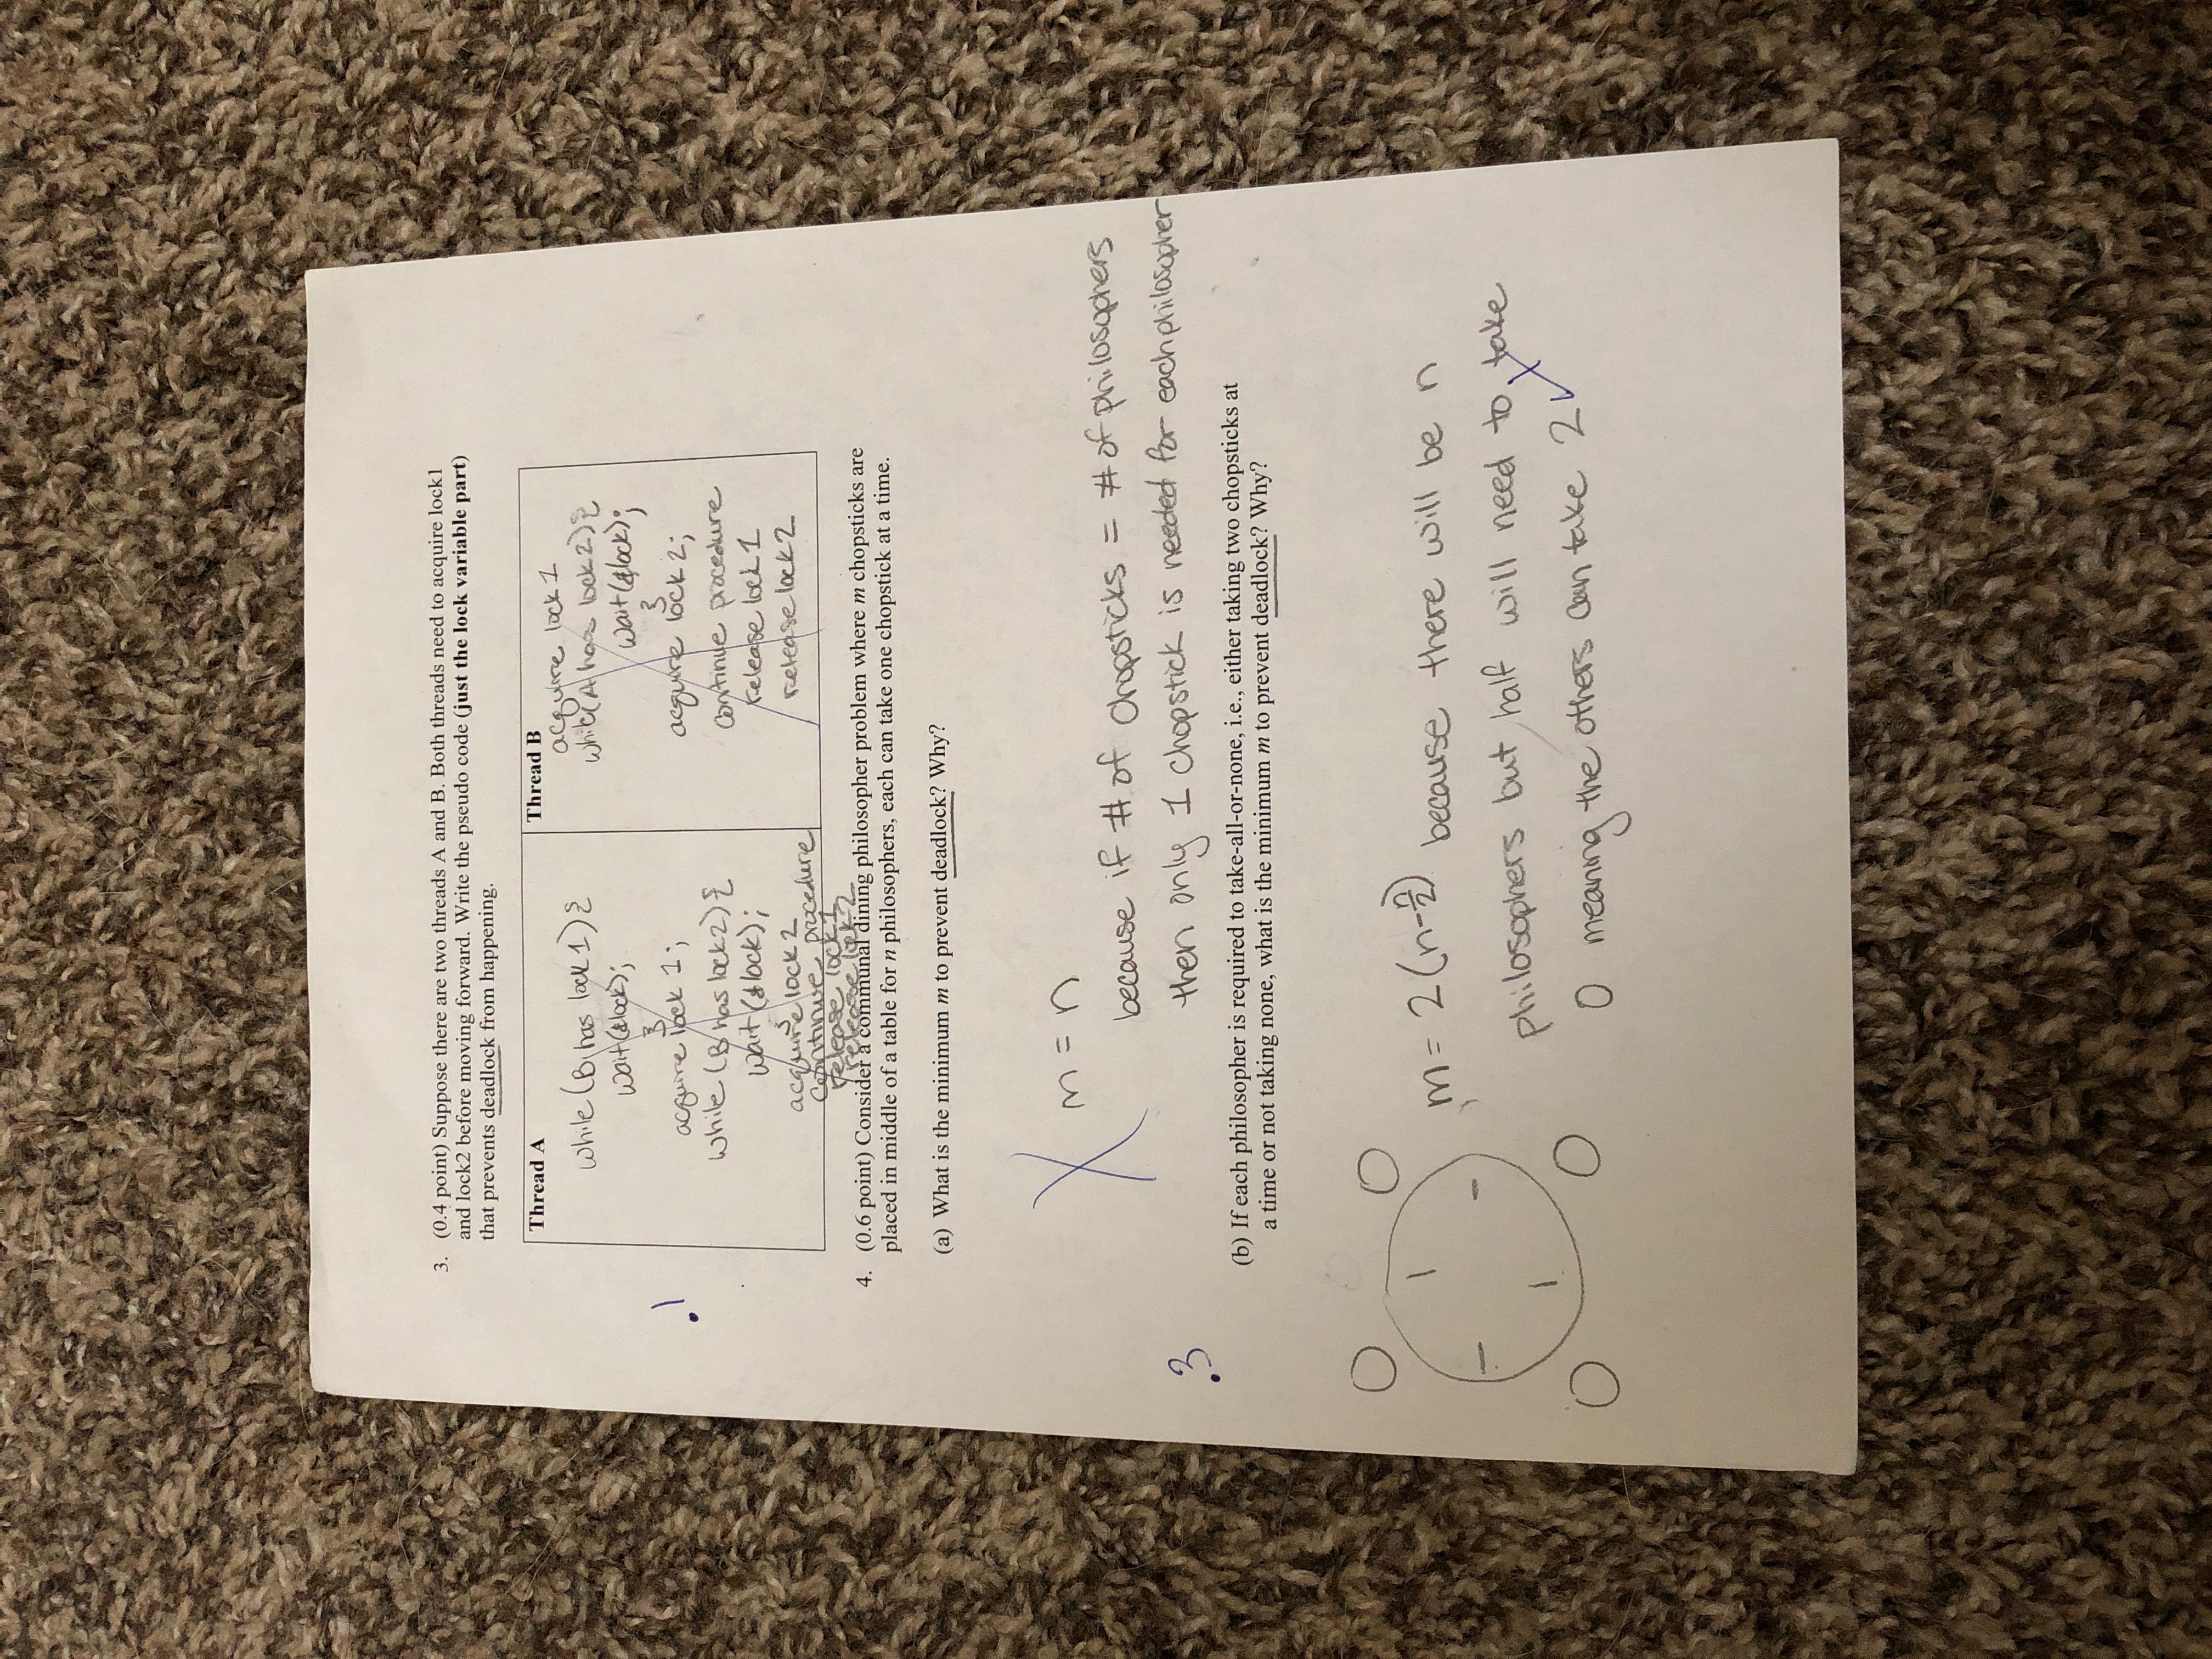 3. (0.4 point) Suppose there are two threads A and B. Both threads need to acquire lock1
and lock2 before moving forward. Write the pseudo code (just the lock variable part)
that prevents deadlock from happening.
Thread A
while (B has lock 1) {
wait(&lock);
}
acquire lock 1;
while (B has lock2) {
wait (&lock);
}
acquire lock 2
continue procedure
release lock1
release lock 2
Thread B
acquire lock 1
while(A has lock 2) {
wait(&lock);
}
acquire lock 2;
continue procedure
release lock 1
release lock 2
.1
4. (0.6 point) Consider a communal dining philosopher problem where m chopsticks are
placed in middle of a table for n philosophers, each can take one chopstick at a time.
(a) What is the minimum m to prevent deadlock? Why?
m = n
because if # of chopsticks = # of philosophers
then only 1 chopstick is needed for each philosopher
.3
(b) If each philosopher is required to take-all-or-none, i.e., either taking two chopsticks at
a time or not taking none, what is the minimum m to prevent deadlock? Why?
m = 2(n-n/2) because there will be n
philosophers but half will need to take
0 meaning the others can take 2